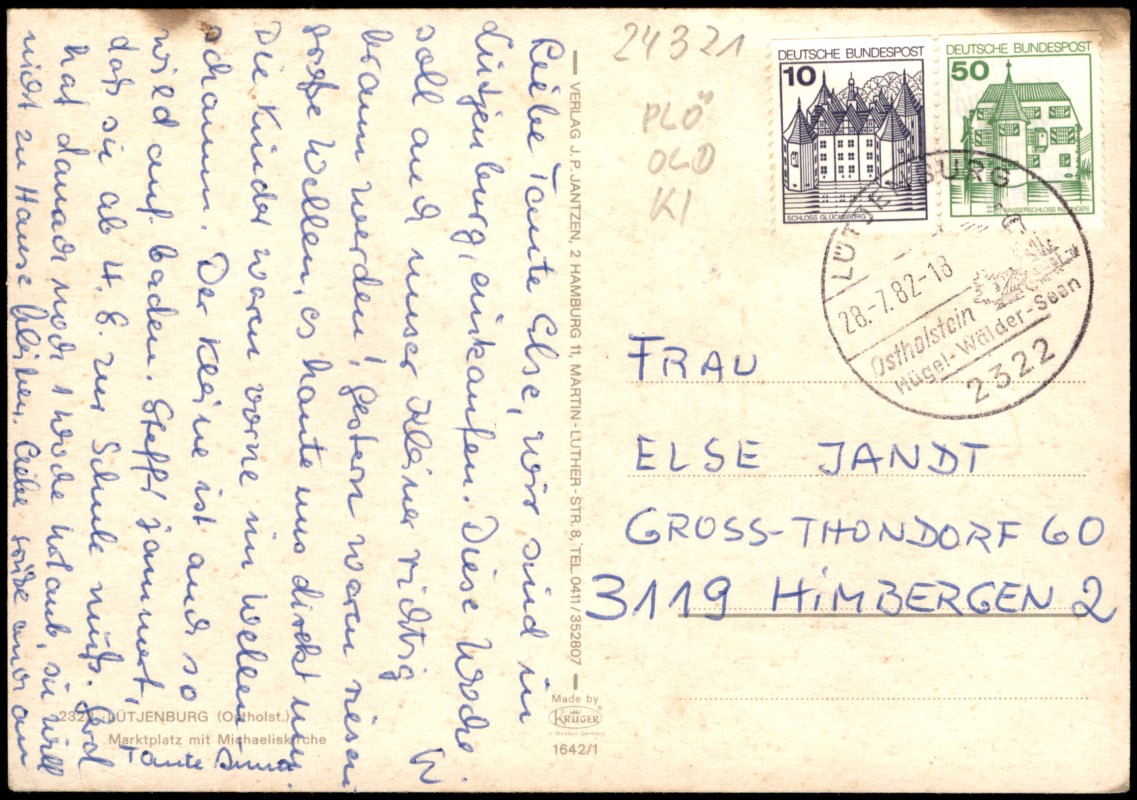 Liebe Tante Else, wir sind in
Lütjenburg, einkaufen. Diese Woche
soll auch unser Kleiner richtig
braun werden! Gestern waren riesen
große Wellen, es haute uns direkt um.
Die Kinder waren vorne im Wellen
schaum. Der Kleine ist auch so
wild auf baden. Steffi jammert,
daß sie ab 4. 8. zur Schule muß. Gerd
hat danach noch 1 Woche Urlaub, sie will
nicht zu Hause bleiben. Liebe Grüße
Tante Anna
2322 LÜTJENBURG (Ostholst.)
Marktplatz mit Michaeliskirche
VERLAG J. P. JANTZEN, 2 HAMBURG 11, MARTIN-LUTHER-STR. 8, TEL. 0411/352807
Made by
KRÜGER
in Western Germany
1642/1
24321
PLÖ
OLD
KI
DEUTSCHE BUNDESPOST
10
SCHLOSS GLÜCKSBURG
DEUTSCHE BUNDESPOST
50
WASSERSCHLOSS INZLINGEN
LÜTJENBURG
28.-7.82-18
Ostholstein
Hügel-Wälder-Seen
2322
FRAU
ELSE JANDT
GROSS-THONDORF 60
3119 HIMBERGEN 2